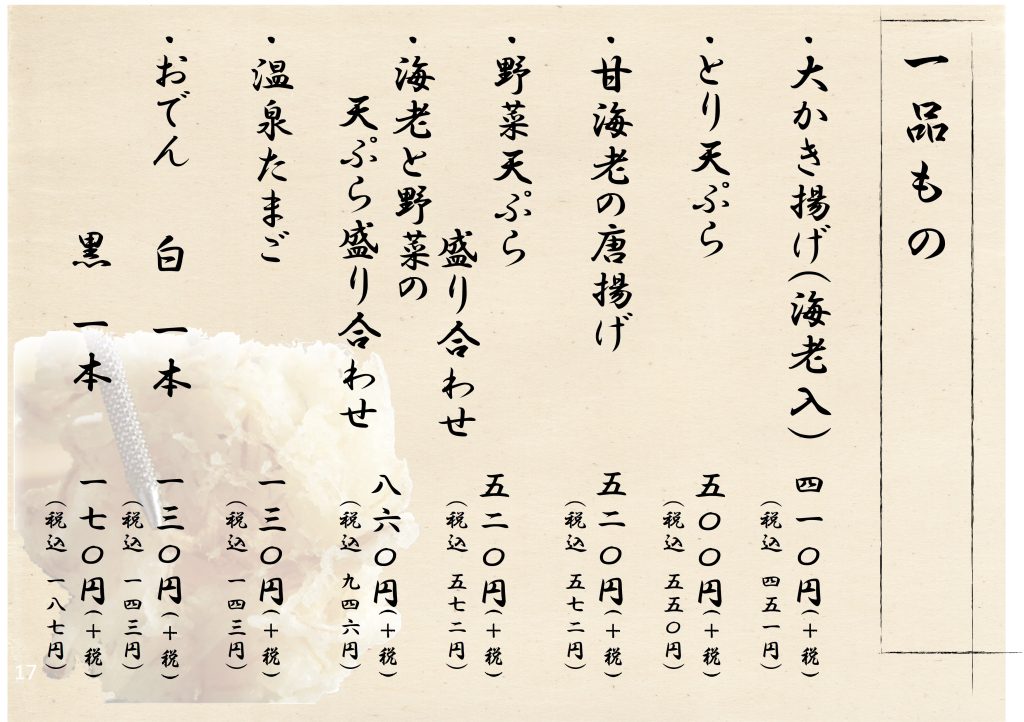 一品もの
・大かき揚げ(海老入) 四一〇円(+税)
(税込 四五一円)
・とり天ぷら 五〇〇円(+税)
(税込 五五〇円)
・甘海老の唐揚げ 五二〇円(+税)
(税込 五七二円)
・野菜天ぷら
盛り合わせ 五二〇円(+税)
(税込 五七二円)
・海老と野菜の
天ぷら盛り合わせ 八六〇円(+税)
(税込 九四六円)
・温泉たまご 一三〇円(+税)
(税込 一四三円)
・おでん 白 一本 一三〇円(+税)
(税込 一四三円)
黒 一本 一七〇円(+税)
(税込 一八七円)
17